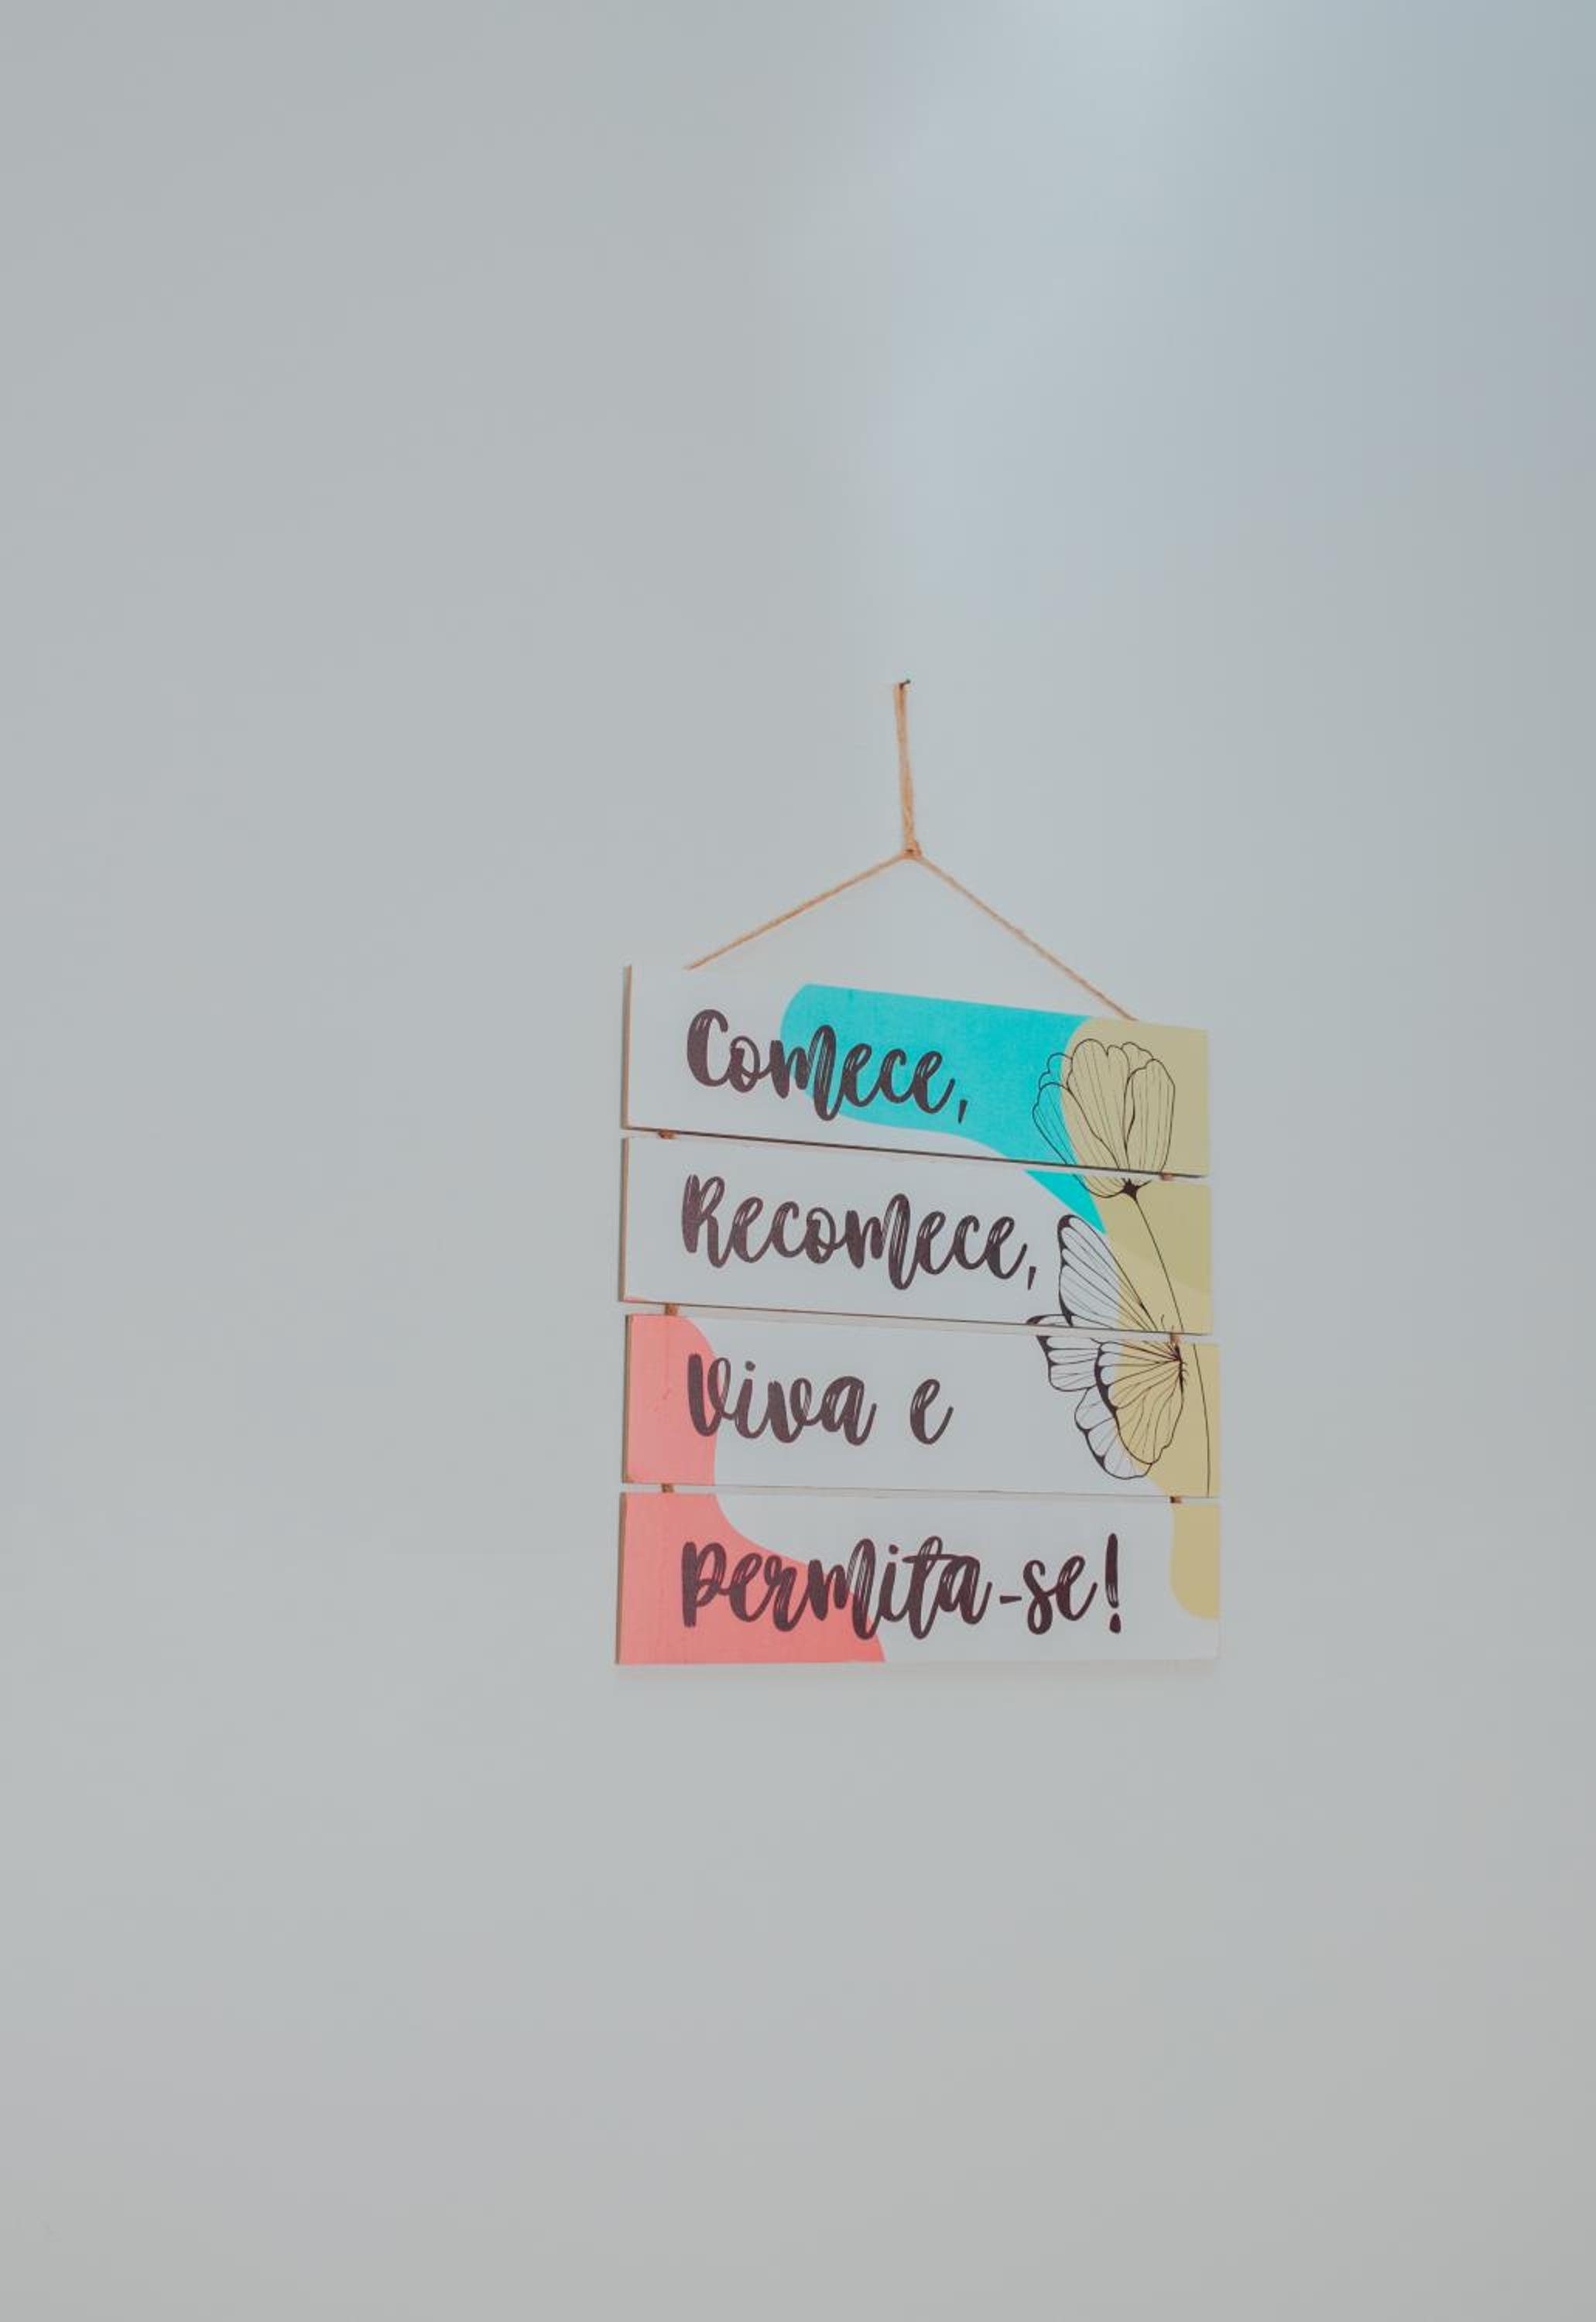 Comece,
Recomece,
Viva e
permita-se!